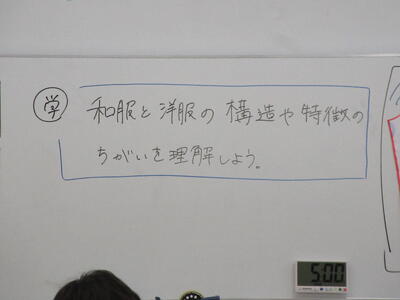 学 和服と洋服の構造や特徴の
ちがいを理解しよう。
5:00